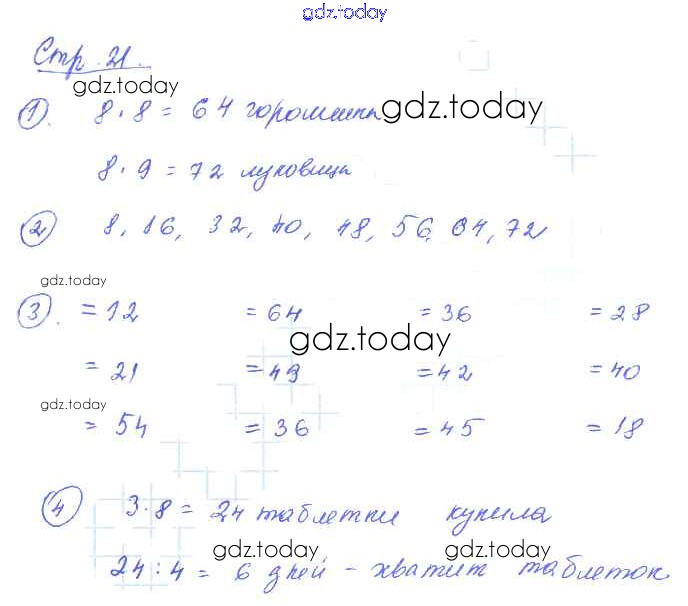 gdz.today
Стр. 21.
gdz.today
1). 8 · 8 = 64 горошины gdz.today
8 · 9 = 72 луковицы
2) 8, 16, 32, 40, 48, 56, 64, 72
gdz.today
3). = 12 = 64 = 36 = 28
gdz.today
= 21 = 49 = 42 = 40
gdz.today
= 54 = 36 = 45 = 18
4) 3 · 8 = 24 таблетки купила
gdz.today gdz.today
24 : 4 = 6 дней - хватит таблеток